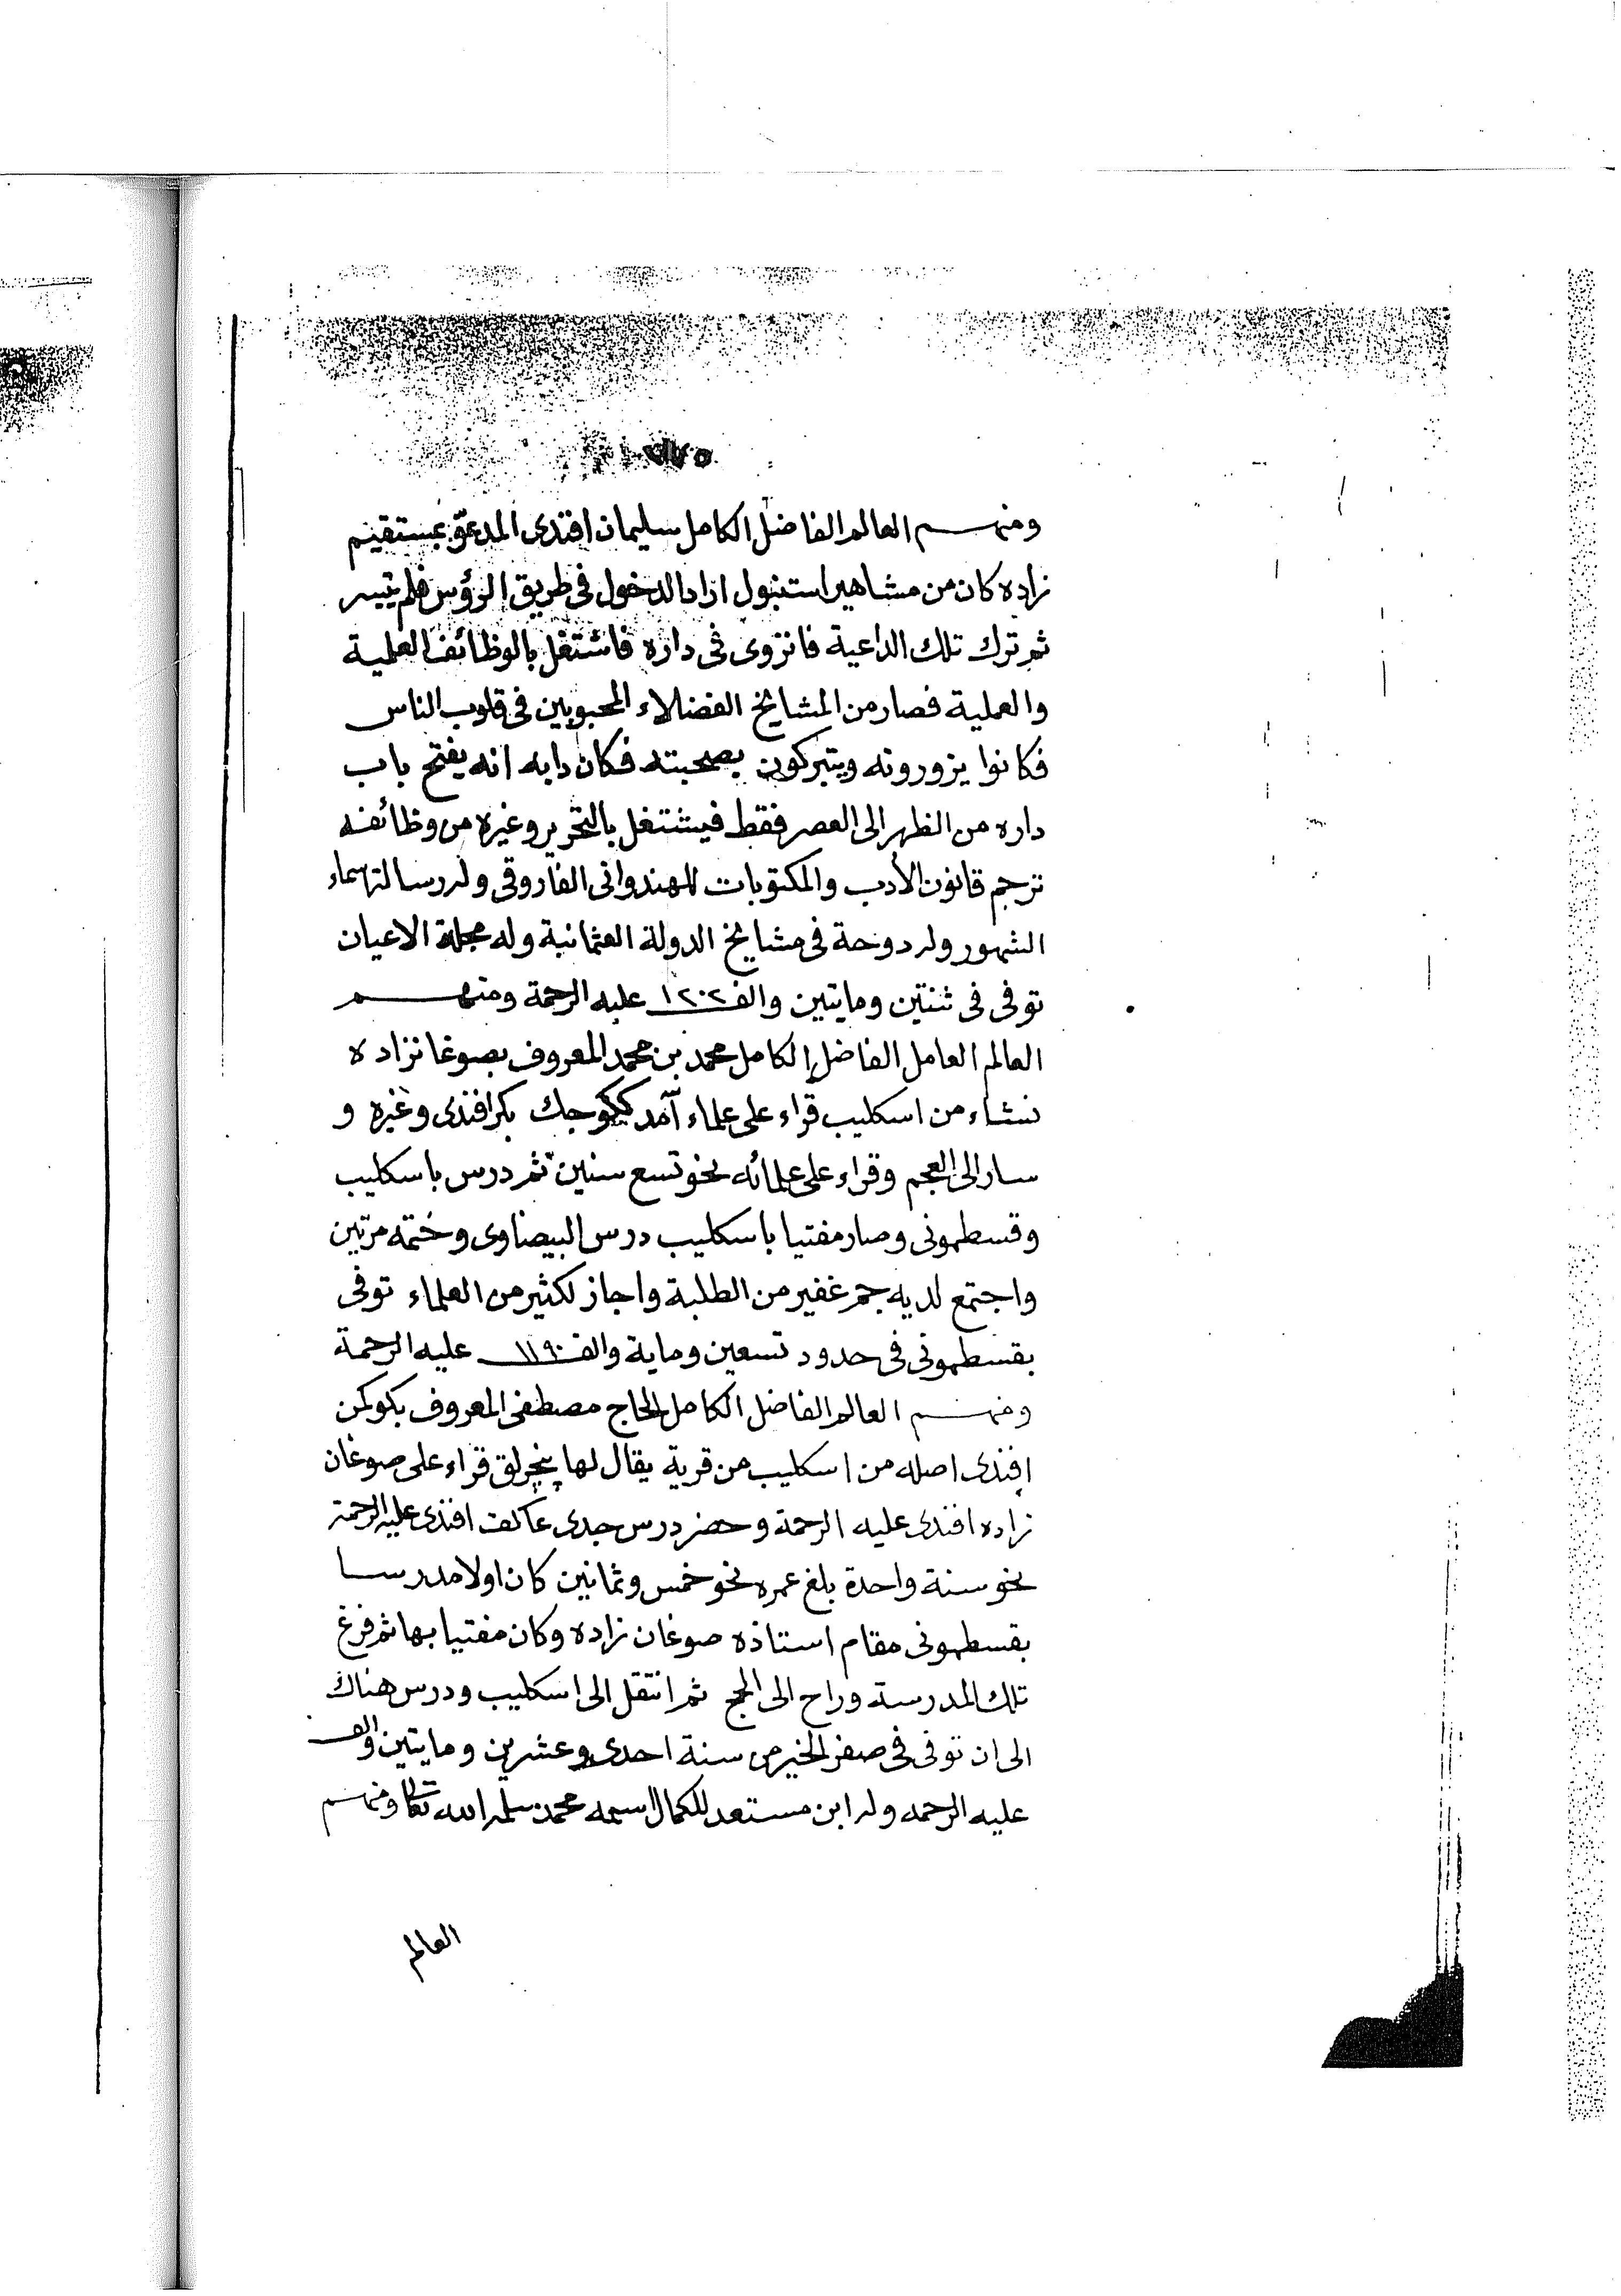 ومنهم العالم الفاضل الكامل سليمان افندى المدعو بمستقيم
زاده كان من مشاهير استنبول اراد الدخول فى طريق الرؤس فلم يتيسر
ثم ترك تلك الداعية فانزوى فى داره فاشتغل بالوظائف العلمية
والعملية فصار من المشايخ الفضلاء المحبوبين فى قلوب الناس
فكانوا يزورونه ويتبركون بصحبته فكان دابه انه يفتح باب
داره من الظهر الى العصر فقط فيشتغل بالتحرير وغيره من وظائفه
ترجم قانون الأدب والمكتوبات للهندوانى الفاروقى وله رسالة اسماء
الشهور وله دوحة فى مشايخ الدولة العثمانية وله مجلة الاعيان
توفى فى ثنتين ومايتين والف ١٢٠٢ عليه الرحمة ومنهم
العالم العامل الفاضل الكامل محمد بن محمد المعروف بصوغانزاده
نشاء من اسكليب قراء على علماء آمد ككوجك بكر افندى وغيره و
سار الى العجم وقراء على علمائه نحو تسع سنين ثم درس باسكليب
وقسطمونى وصار مفتيا باسكليب درس البيضاوى وختمه مرتين
واجتمع لديه جم غفير من الطلبة واجاز لكثير من العلماء توفى
بقسطمونى فى حدود تسعين وماية والف ١١٩٠ عليه الرحمة
ومنهم العالم الفاضل الكامل الحاج مصطفى المعروف بكوكن
افندى اصله من اسكليب من قرية يقال لها قراء على صوغان
زاده افندى عليه الرحمة وحضر درس جدى عاكف افندى عليه الرحمة
نحو سنة واحدة بلغ عمره نحو خمس وثمانين كان اولا مدرسا
بقسطمونى مقام استاذه صوغان زاده وكان مفتيا بها ثم فرغ
تلك المدرسة وراح الى الحج ثم انتقل الى اسكليب ودرس هناك
الى ان توفى فى صفر الخير من سنة احدى وعشرين ومايتين والف
عليه الرحمه وله ابن مستعد للكمال اسمه محمد سلمه الله تعالى ومنهم
العالم